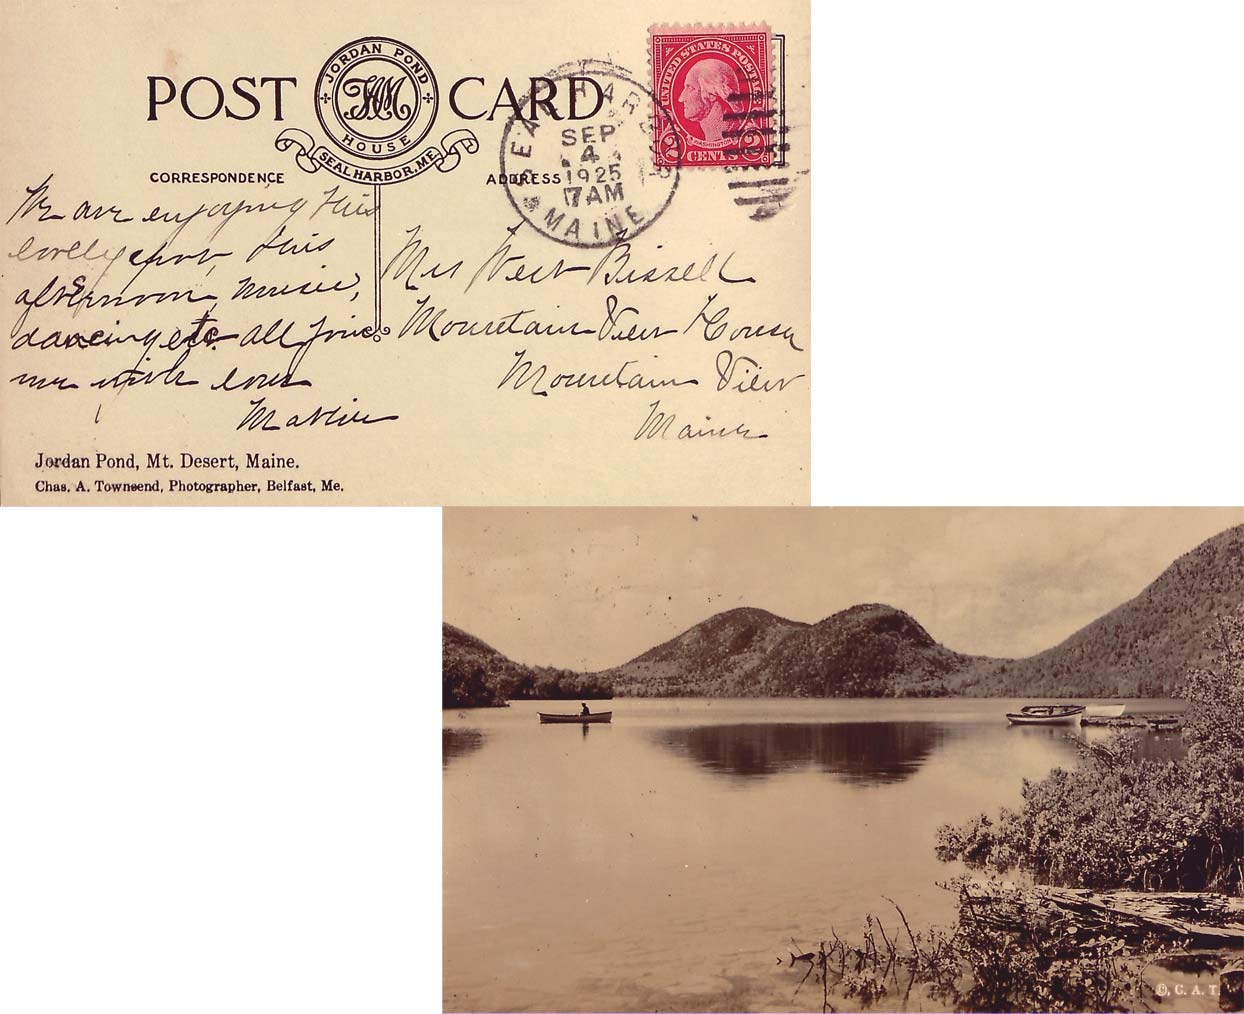 POST CARD
JORDAN POND
HOUSE
SEAL HARBOR, ME.
CORRESPONDENCE
ADDRESS
SEAL HARBOR
SEP
4
1925
7 AM
MAINE
UNITED STATES POSTAGE
WASHINGTON
2 CENTS 2
We are enjoying this
lovely spot, this
afternoon, music,
dancing etc all join
me with love
Mrs West Bissell
Mountain View House
Mountain View
Maine
Jordan Pond, Mt. Desert, Maine.
Chas. A. Townsend, Photographer, Belfast, Me.
©, C. A. T.